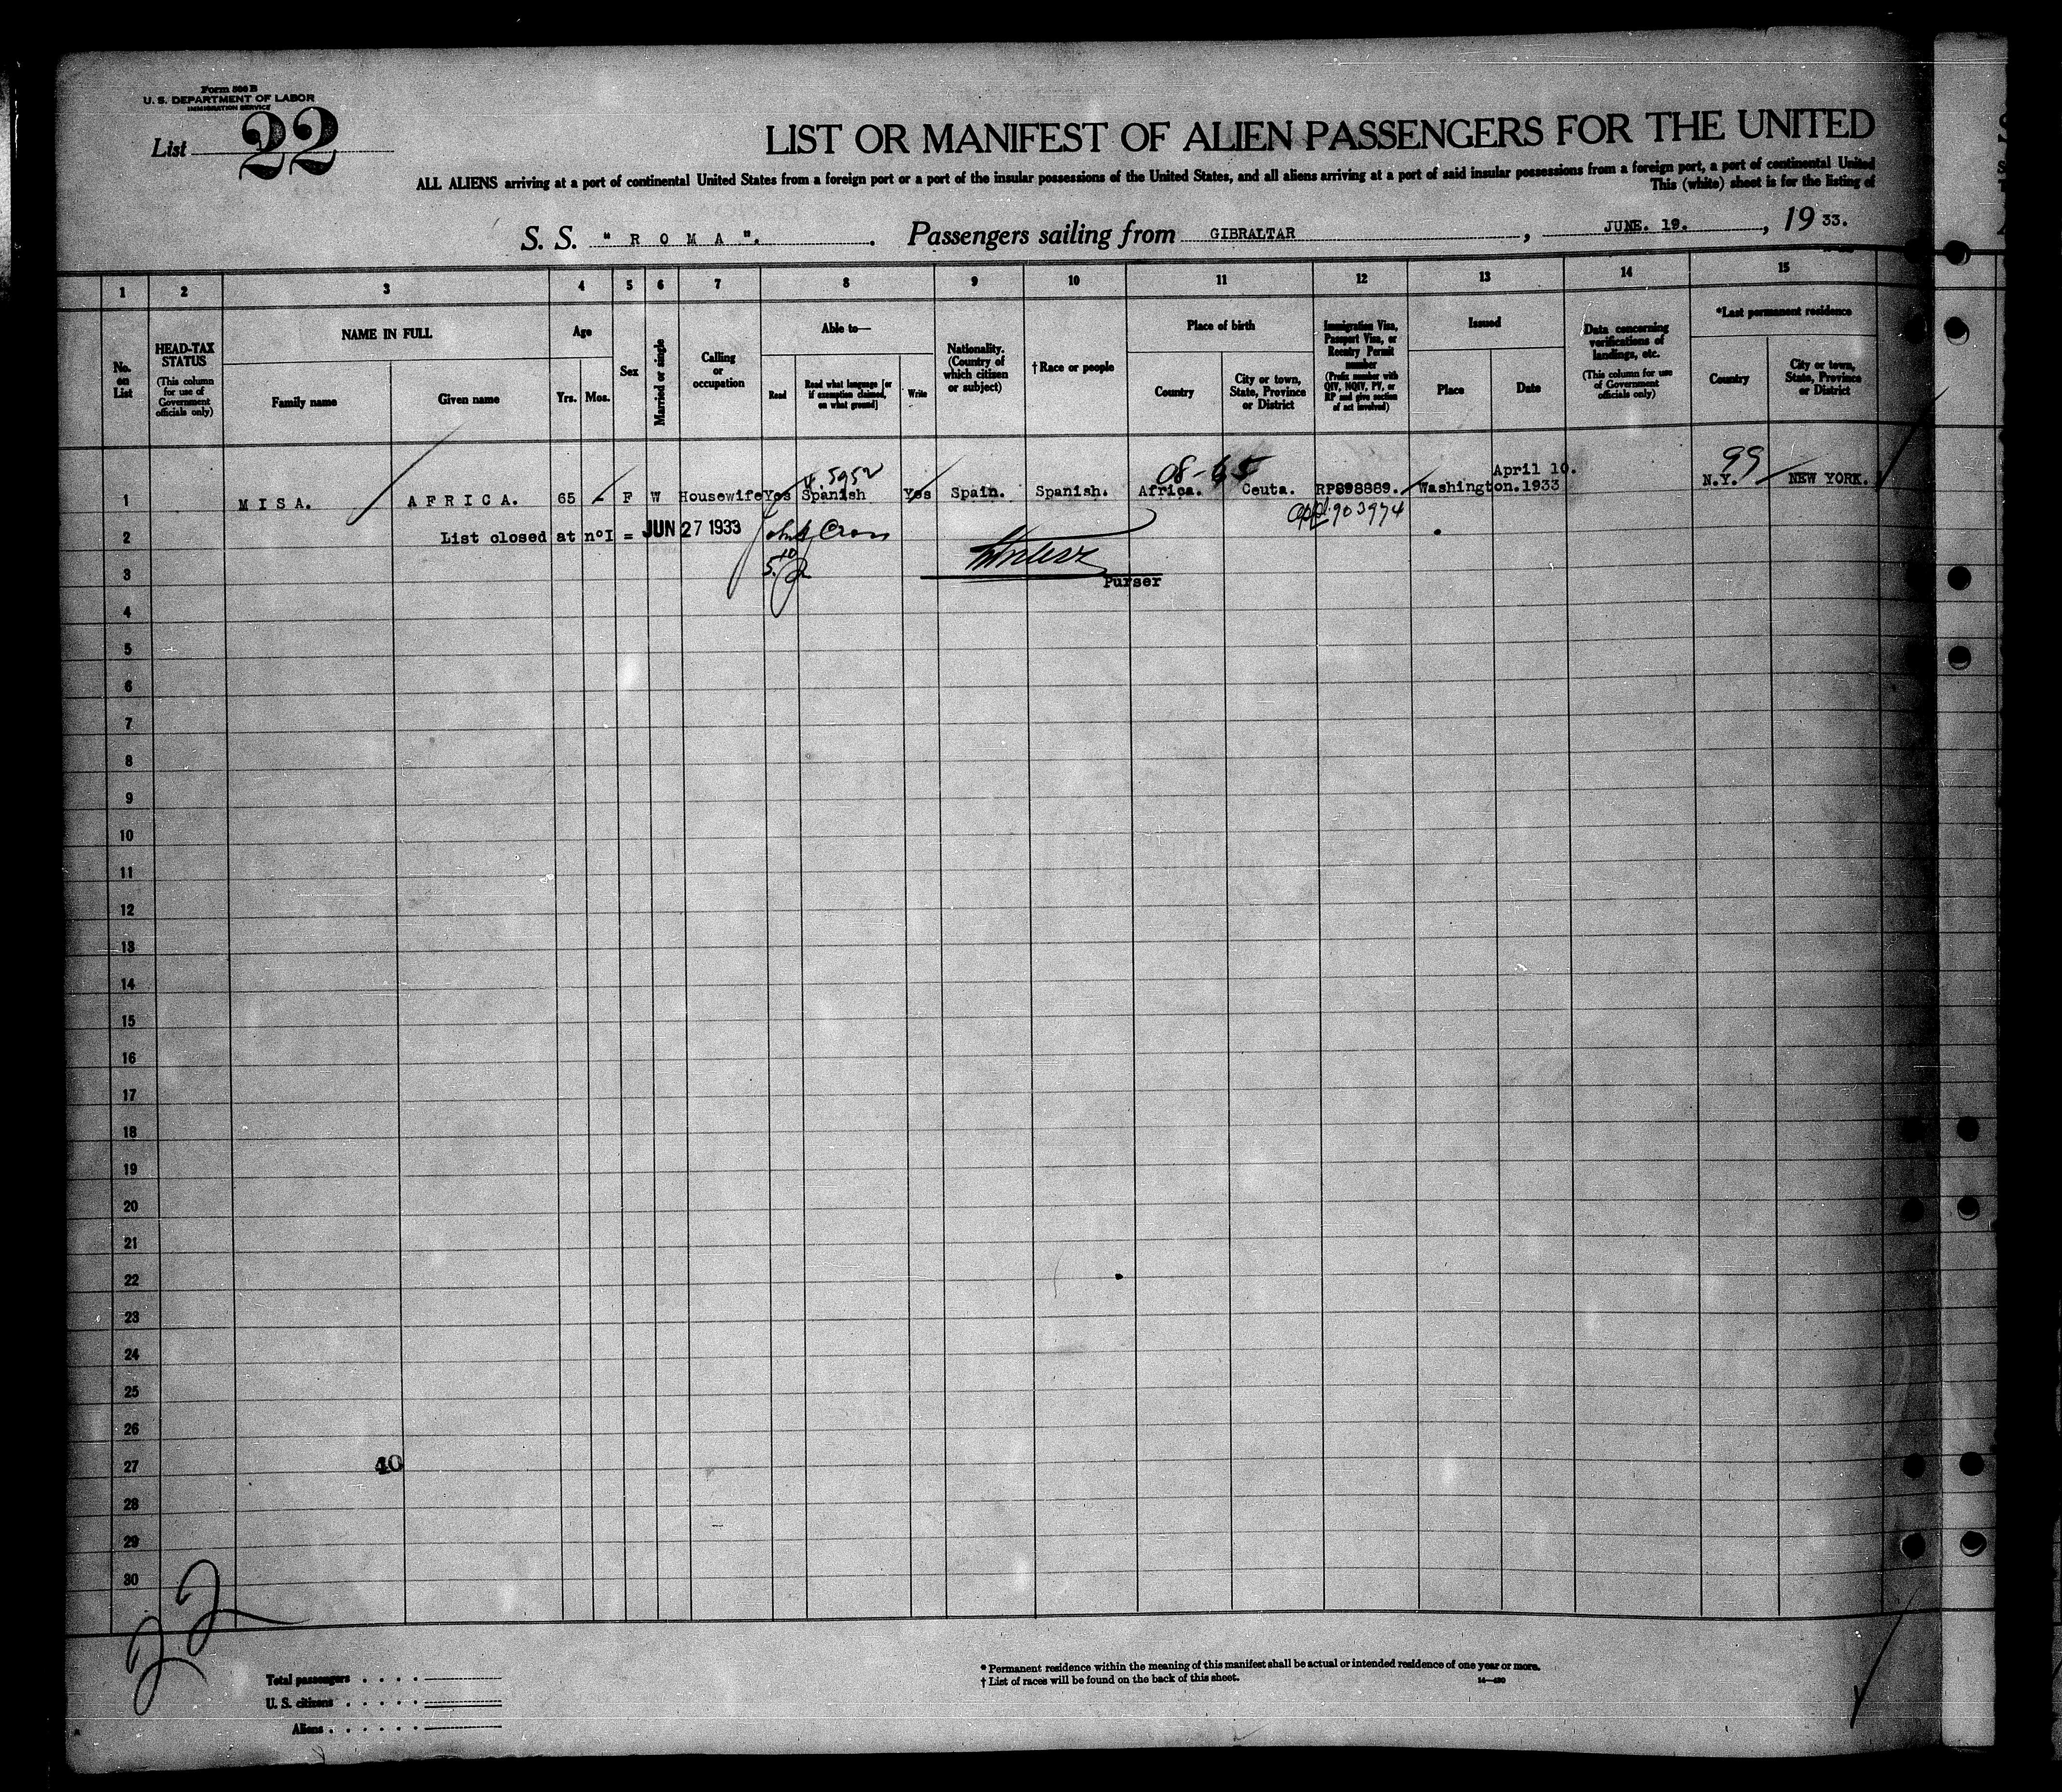 Form 500 B
U. S. DEPARTMENT OF LABOR
IMMIGRATION SERVICE
List 22
LIST OR MANIFEST OF ALIEN PASSENGERS FOR THE UNITED
ALL ALIENS arriving at a port of continental United States from a foreign port or a port of the insular possessions of the United States, and all aliens arriving at a port of said insular possessions from a foreign port, a port of continental United
This (white) sheet is for the listing of
S. S. " R O M A ". Passengers sailing from GIBRALTAR, JUNE. 19., 19 33.
1 2 3 4 5 6 7 8 9 10 11 12 13 14 15
No. on List
HEAD-TAX STATUS
(This column for use of Government officials only)
NAME IN FULL
Family name
Given name
Age
Yrs. Mos.
Sex
Married or single
Calling or occupation
Able to—
Read
Read what language [or if exemption claimed, on what ground]
Write
Nationality. (Country of which citizen or subject)
† Race or people
Place of birth
Country
City or town, State, Province or District
Immigration Visa, Passport Visa, or Reentry Permit number
(Prefix number with QIV, NQIV, PV, or RP and give section of act involved)
Issued
Place
Date
Data concerning verifications of landings, etc.
(This column for use of Government officials only)
*Last permanent residence
Country
City or town, State, Province or District
5952 08-65 April 10. 99
1 M I S A. A F R I C A. 65 - F W Housewife Yes Spanish Yes Spain. Spanish. Africa. Ceuta. RP898889. Washington. 1933 N.Y. NEW YORK.
903974
2 List closed at n°I = JUN 27 1933
3 Purser
4
5
6
7
8
9
10
11
12
13
14
15
16
17
18
19
20
21
22
23
24
25
26
27 40
28
29
30
22
Total passengers
U. S. citizens
Aliens
* Permanent residence within the meaning of this manifest shall be actual or intended residence of one year or more.
† List of races will be found on the back of this sheet.